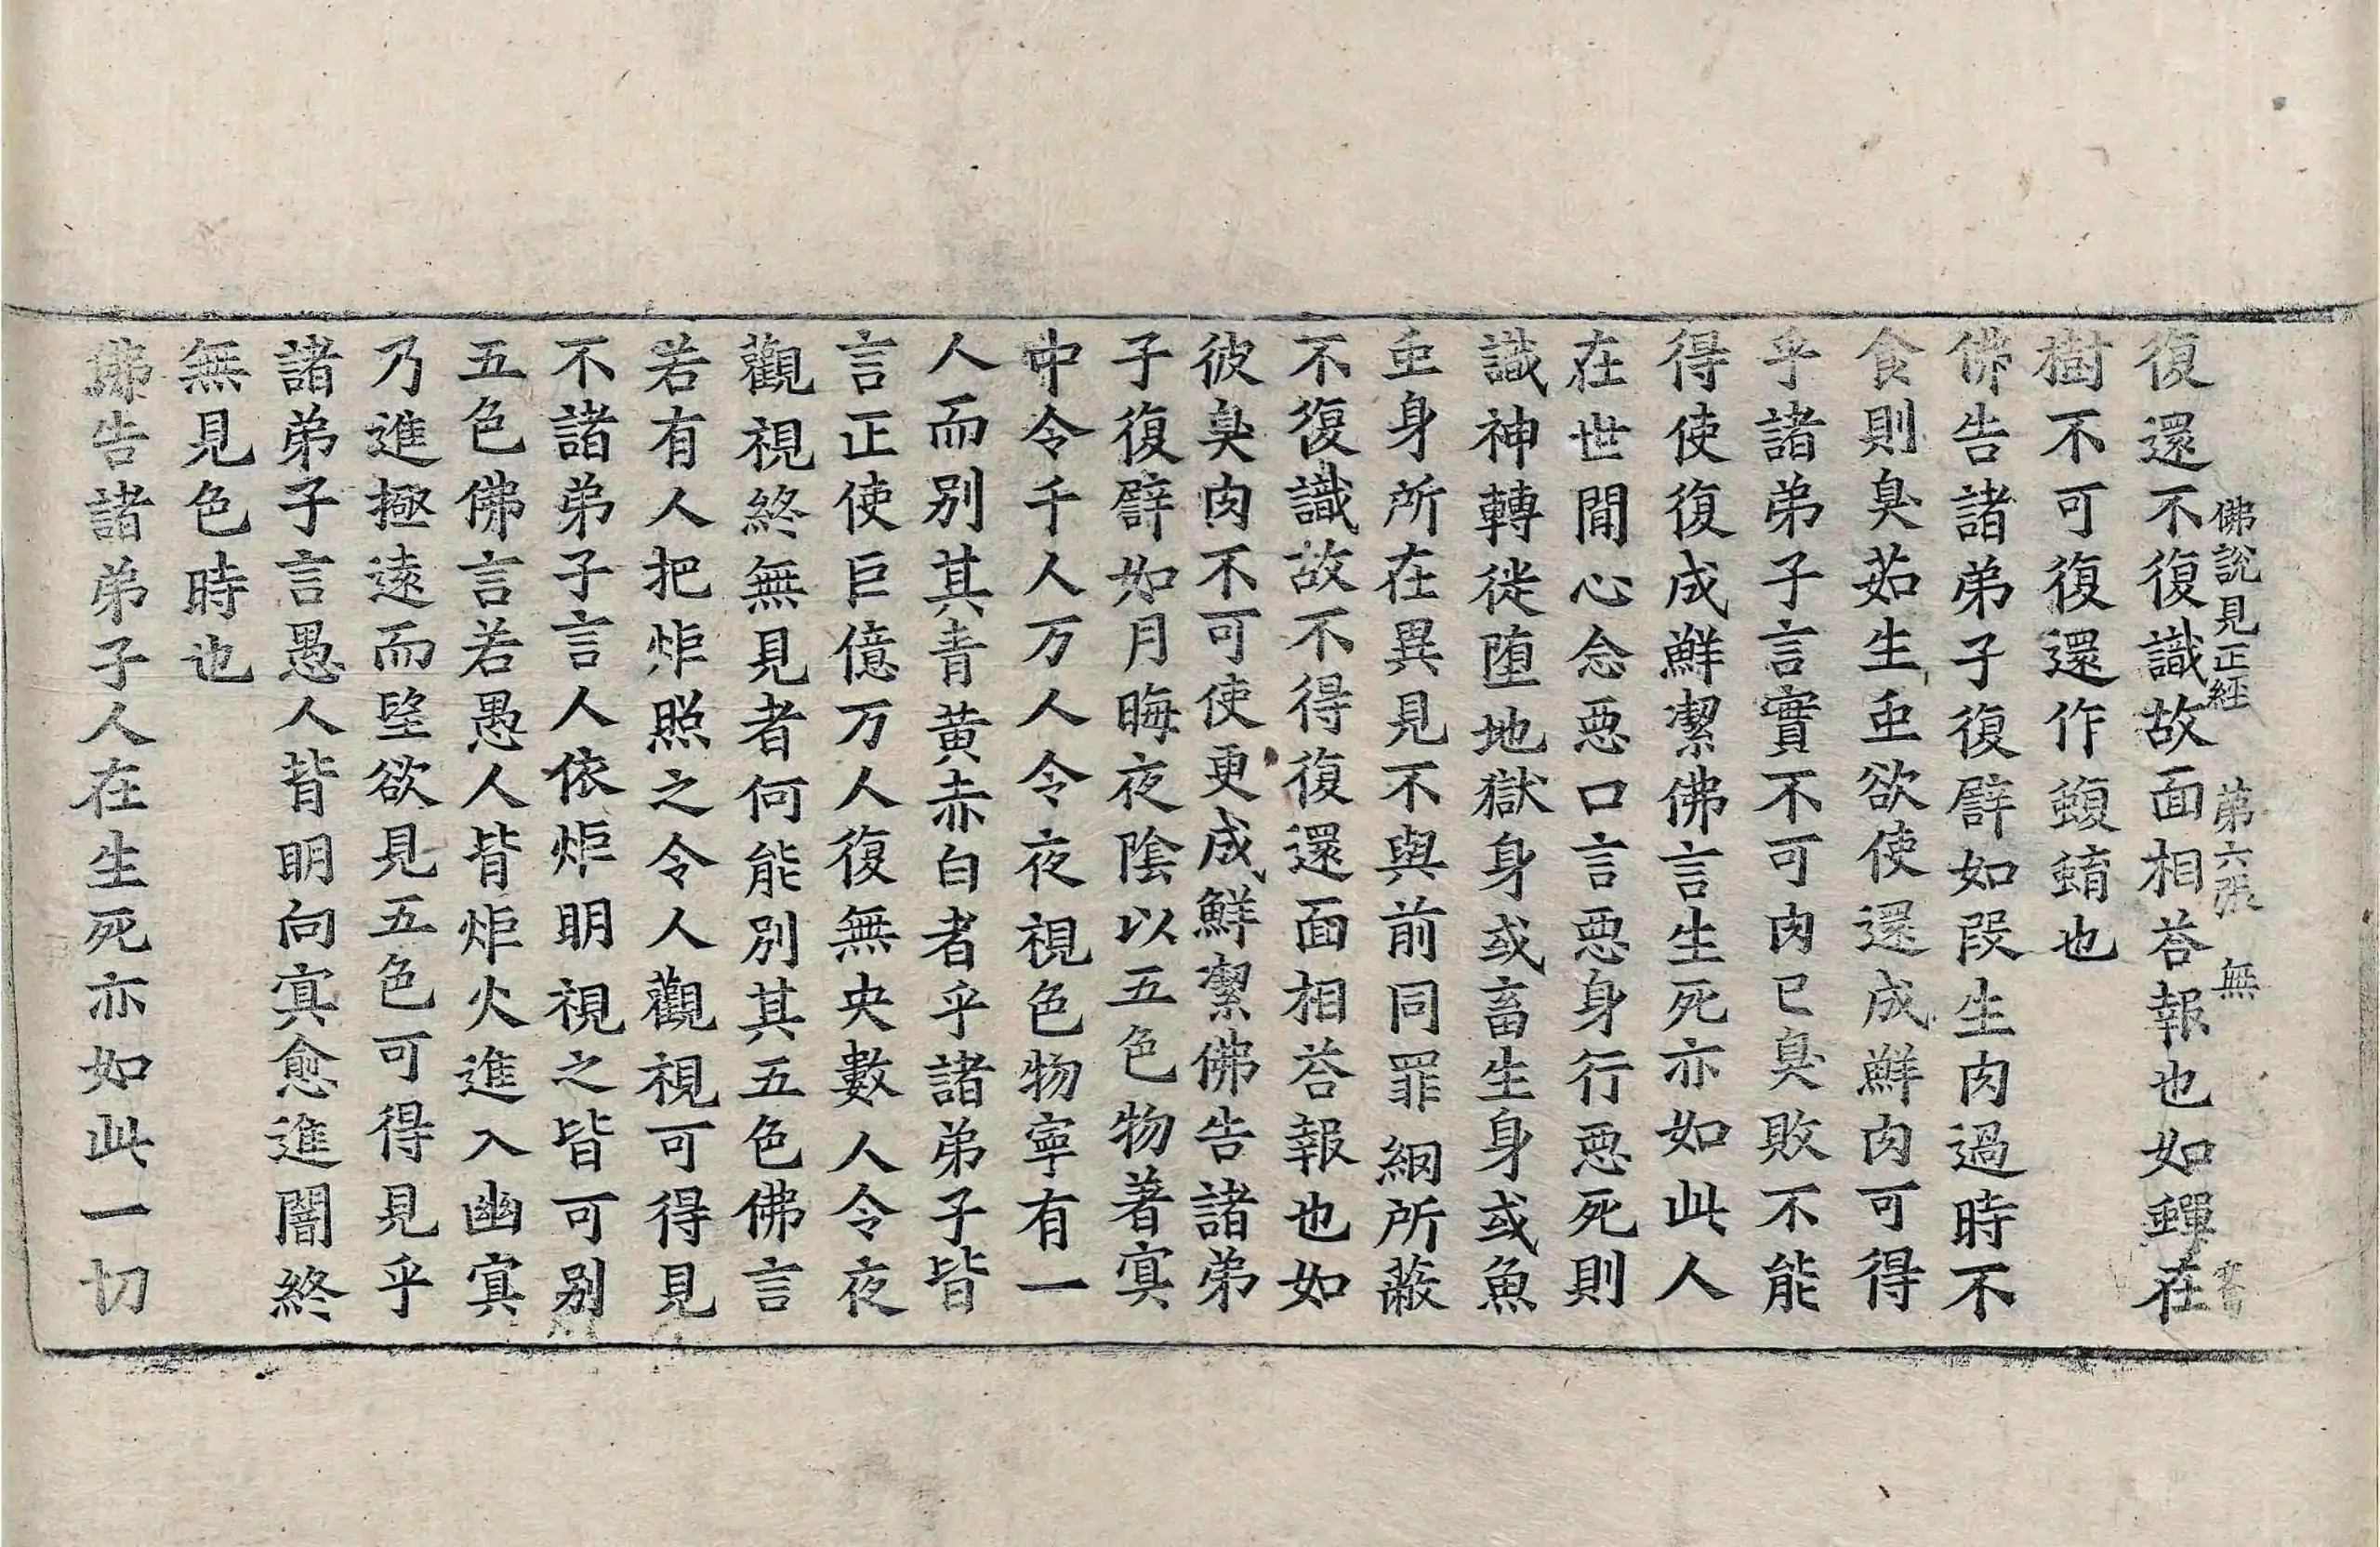 佛說見正經 苐六張 無
復還不復識故面相荅報也如蟬在
樹不可復還作蝮蜟也
佛告諸弟子復譬如段生肉過時不
食則臭茹生䖝欲使還成鮮肉可得
乎諸弟子言實不可肉已臭敗不能
得使復成鮮潔佛言生死亦如此人
在世間心念惡口言惡身行惡死則
識神轉徙堕地獄身或畜生身或魚
䖝身所在異見不與前同罪綱所蔽
不復識故不得復還面相荅報也如
彼臭肉不可使更成鮮潔佛告諸弟
子復譬如月晦夜陰以五色物著㝠
中令千人万人令夜視色物寧有一
人而別其青黄赤白者乎諸弟子皆
言正使巨億万人復無央數人令夜
觀視終無見者何能別其五色佛言
若有人把炬照之令人觀視可得見
不諸弟子言人依炬明視之皆可別
五色佛言若愚人背炬火進入幽㝠
乃進極遠而望欲見五色可得見乎
諸弟子言愚人背明向㝠愈進闇終
無見色時也
佛告諸弟子人在生死亦如此一切